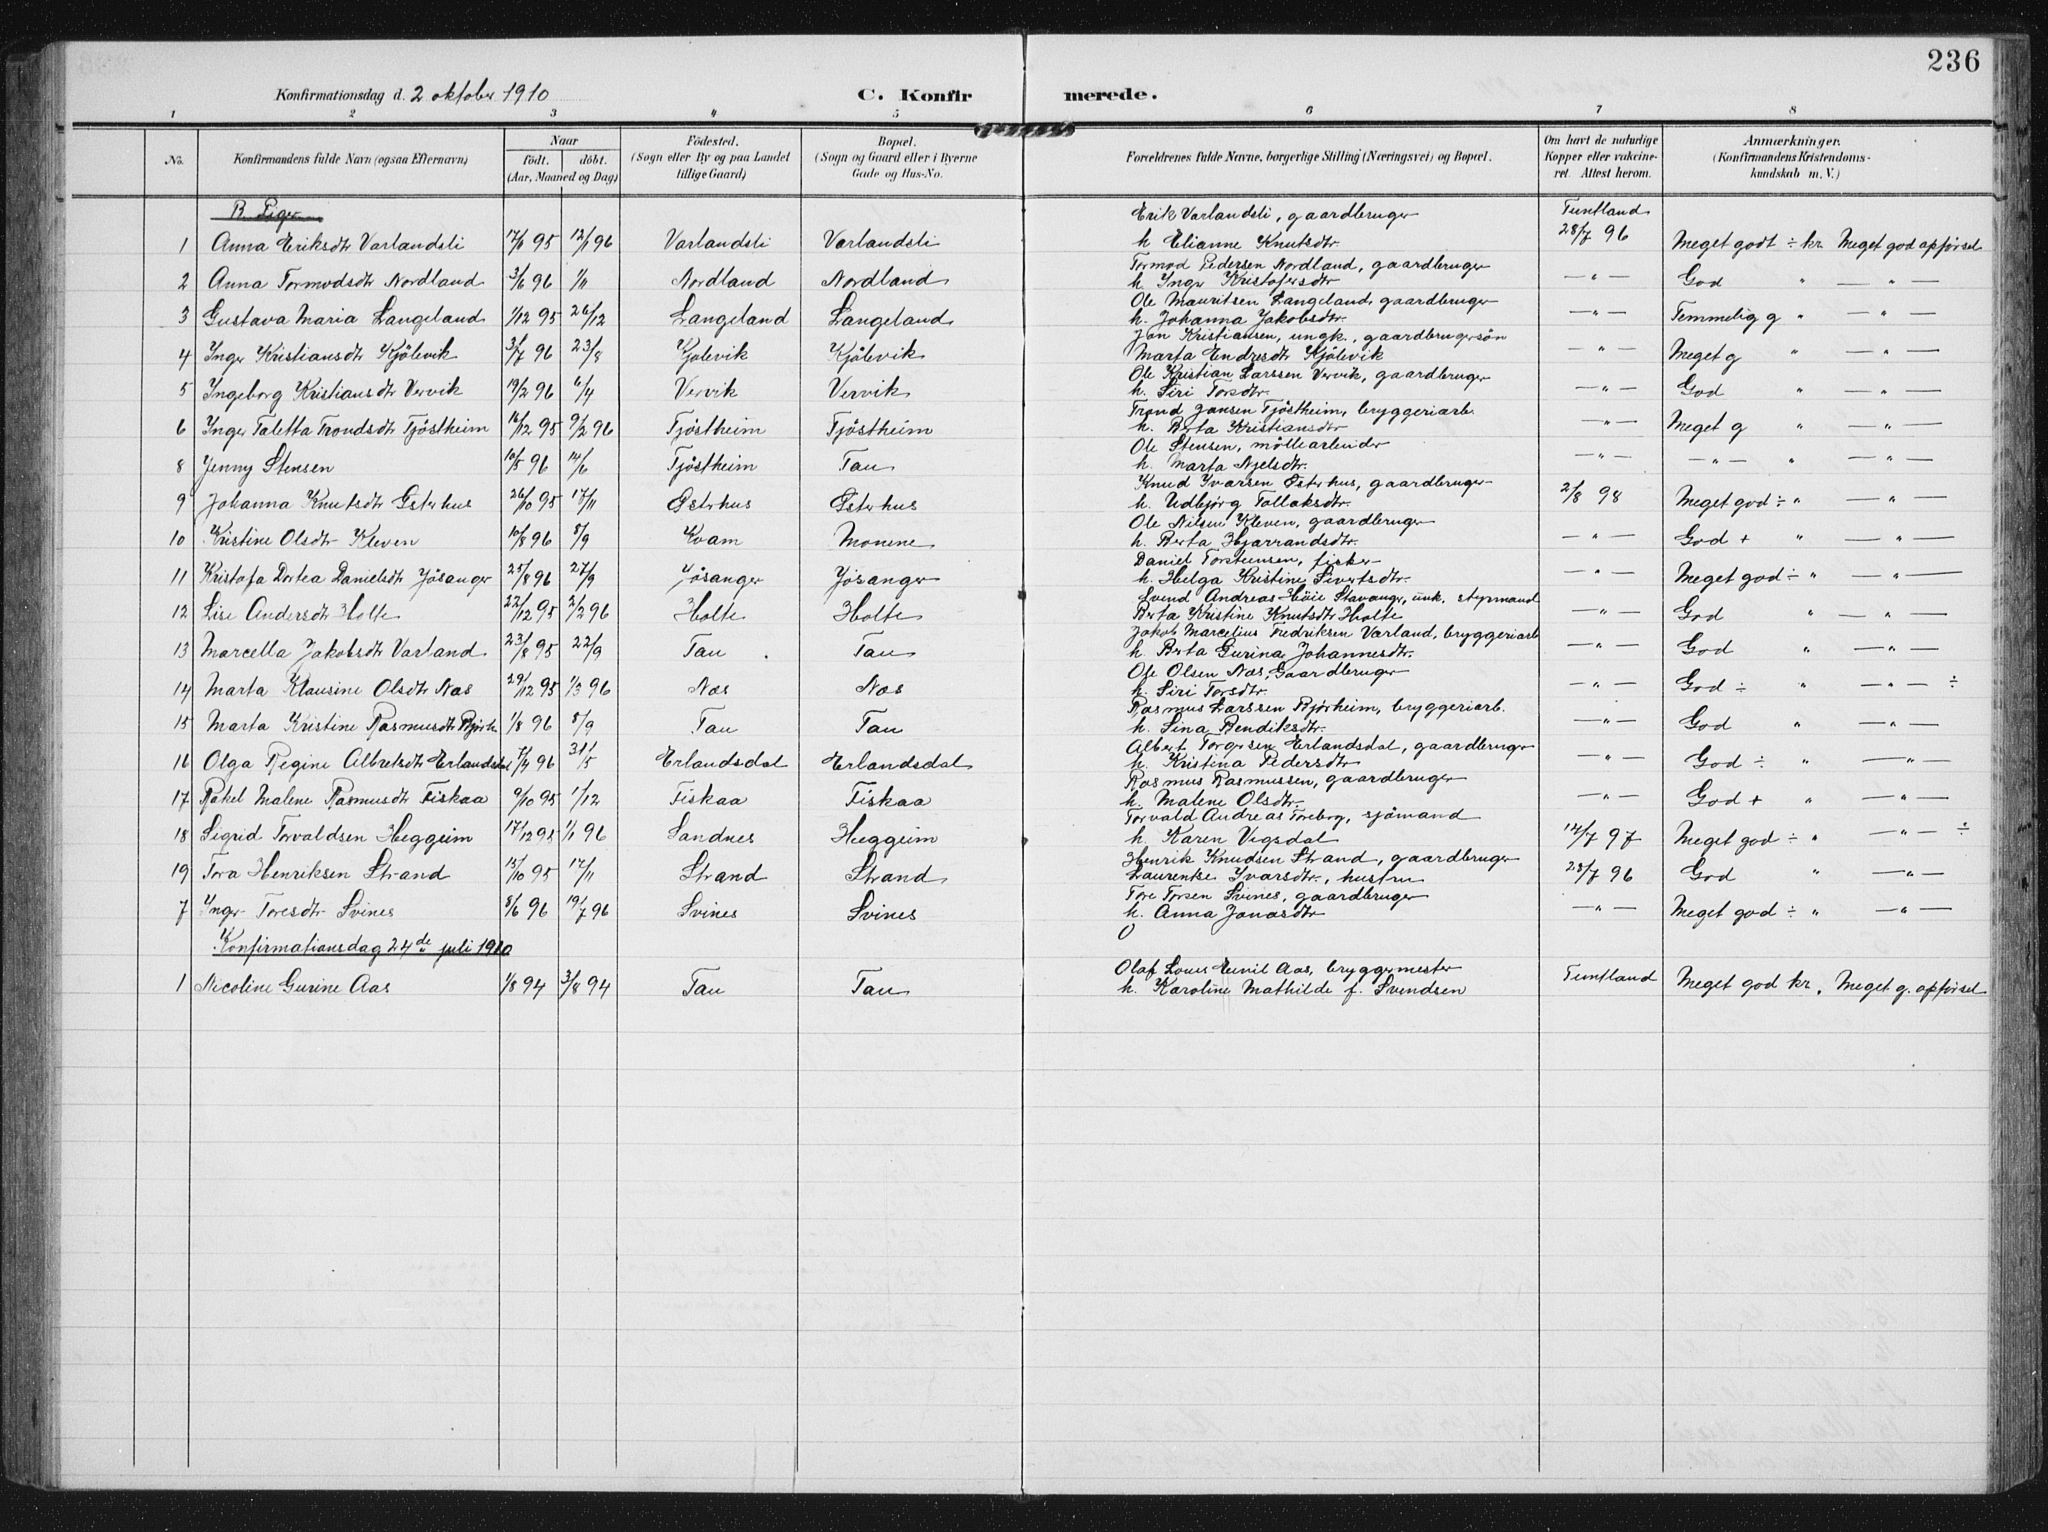 236
Konfirmationsdag d. 2 oktober 1910 C. Konfir merede.
1 2 3 4 5 6 7 8
No. Konfirmandens fulde Navn (ogsaa Efternavn) Naar födt. döbt. (Aar, Maaned og Dag) Födested. (Sogn eller By og paa Landet tillige Gaard) Bopæl. (Sogn og Gaard eller i Byerne Gade og Hus-No. Forældrenes fulde Navne, borgerlige Stilling (Næringsvei) og Bopæl. Om havt de naturlige Kopper eller vakcineret. Attest herom. Anmærkninger. (Konfirmandens Kristendomskundskab m. V.)
B. Piger
Erik Varlandsli, gaardbruger Tuntland
1 Anna Eriksdtr Varlandsli 95 96 Varlandsli Varlandsli h Elianne Knutsdtr. 28/7 96 Meget godt ÷ kr Meget god opførsel
Tormod Pedersen Nordland, gaardbruger
2 Anna Tormodsdtr Nordland 3/6 96 1/11 Nordland Nordland h Inger Kristofersdtr — " — God " — " —
Ole Mauritsen Langeland, gaardbruger
3 Gustava Maria Langeland 1/12 95 26/12 Langeland Langeland h. Johanna Jakobsdtr. — " — Temmelig g " — " —
Jon Kristiansen, ungk., gaardbrugersøn
4 Inger Kristiansdtr Kjölevik 3/7 96 23/8 Kjölevik Kjölevik Marta Endresdtr Kjölevik — " — Meget g " — " —
Ole Kristian Larssen Vervik, gaardbruger
5 Ingeborg Kristiansdtr Vervik 19/2 96 6/4 Vervik Vervik h. Siri Torsdtr. — " — God " — " —
Trond Jansen Tjöstheim, bryggeriarb.
6 Inger Taletta Trondsdtr Tjöstheim 16/12 95 9/2 96 Tjöstheim Tjöstheim h. Berta Kristiansdtr — " — Meget g " — " —
Ole Stensen, möllearbeider
8 Jenny Stensen 10/5 96 14/6 Tjöstheim Tau h. Marta Njelsdtr. — " — — " — " — " —
Knud Ivarsen Østerhus, gaardbruger
9 Johanna Knutsdtr Østerhus 26/10 95 17/11 Østerhus Østerhus h. Udbjørg Tollaksdtr. 2/8 98 Meget god ÷ " — " —
Ole Nilsen Kleven, gaardbruger
10 Kristine Olsdtr Kleven 10/8 96 8/9 Kvam Monene h. Berta Hjarrandsdtr. — " — God + " — " —
Daniel Torstensen, fisker
11 Kristofa Dortea Danielsdtr Jösanger 25/8 96 27/9 Jösanger Jösanger h. Helga Kristine Sivertsdtr. — " — Meget god ÷ " — " —
Svend Andreas Höie Stavanger, unk. styrmand
12 Lise Andersdtr Holte 22/12 95 2/2 96 Holte Holte Berta Kristine Knutsdtr Holte — " — God " — " —
Jakob Marcelius Fredriksen Værland, bryggeriarb
13 Marcella Jakobsdtr Varland 23/8 95 22/9 Tau Tau h Berta Gurina Johannesdtr. — " — God " — " —
Ole Olsen Næs, Gaardbruger
14 Marta Klausine Olsdtr Næs 29/12 95 1/3 96 Næs Næs h. Siri Torsdtr. — " — God ÷ " — " — ÷
Rasmus Larssen Bjørheim, bryggeriarb.
15 Marta Kristine Rasmusdtr Bjørh. 1/8 96 8/9 Tau Tau h. Sina Bendiksdtr. — " — God " — " —
Albert Torgersen Erlandsdal, gaardbruger
16 Olga Regine Albretsdtr Erlandsdal 7/4 96 31/5 Erlandsdal Erlandsdal h. Kristina Pedersdtr — " — God ÷ " — " —
Rasmus Rasmussen, gaardbruger
17 Rakel Malene Rasmusdtr Fiskaa 9/10 95 1/12 Fiskaa Fiskaa h. Malene Olsdtr. — " — God + " — " —
Torvald Andreas Foreberg, sjømand
18 Sigrid Torvaldsen Heggeim 17/12 95 1/1 96 Sandnes Heggeim h. Karen Vigsdal 14/7 97 Meget god ÷ " — " — ÷
Henrik Knudsen Strand, gaardbruger
19 Tora Henriksen Strand 15/10 95 17/11 Strand Strand Laurentse Ivarsdtr., hustru 28/7 96 God " — " —
Tore Torsen Svines, gaardbruger
7 Inger Toresdtr Svines 8/6 96 19/7 96 Svines Svines h. Anna Jonasdtr — " — Meget god ÷ " — " —
Konfirmationsdag 24de juli 1910
Olaf Louis Emil Aas, bryggermester
1 Nicoline Gurine Aas 1/8 94 3/8 94 Tau Tau h. Karoline Mathilde f. Svendsen Tuntland Meget god kr. Meget g. opførsel